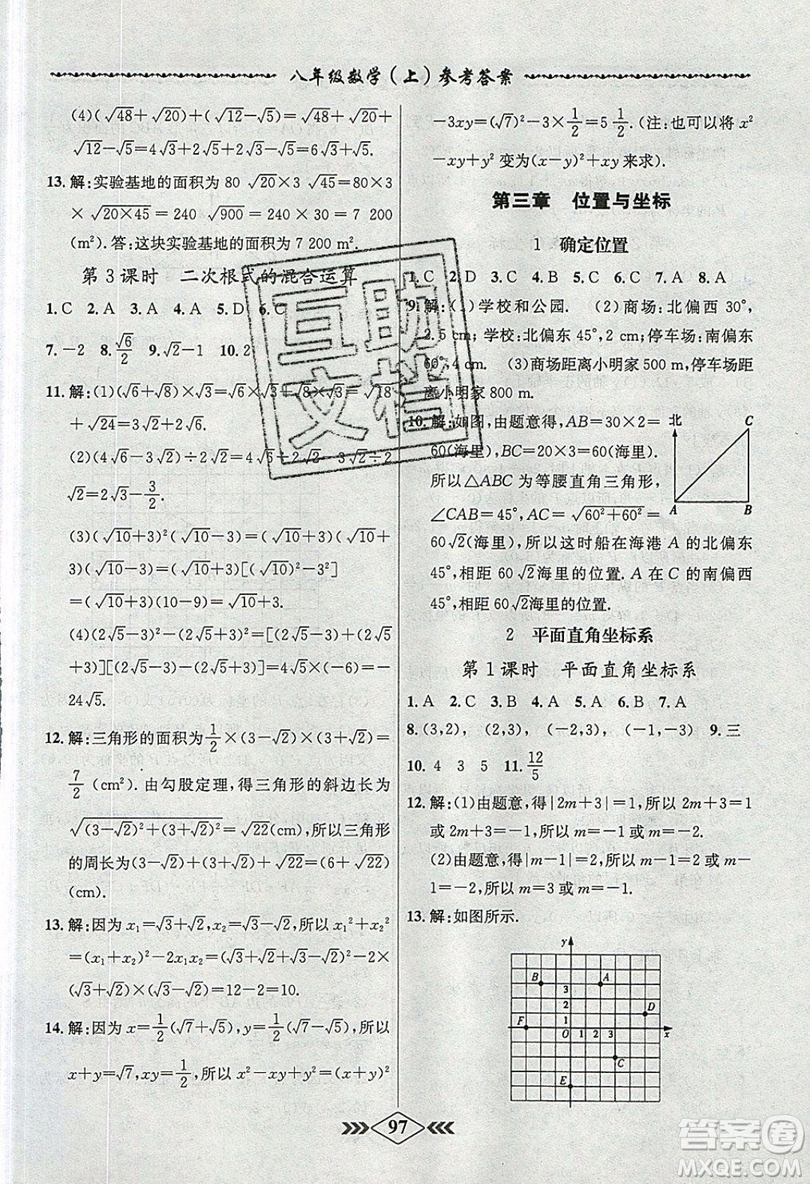 八年级数学(上)参考答案
(4)(√48+√20)+(√12-√5)=√48+√20+
√12-√5=4√3+2√5+2√3-√5=6√3+√5.
13.解:实验基地的面积为 80 √20×3×80×3
×√20×45=240 √900=240×30=7 200
(m²).答:这块实验基地的面积为 7 200 m².
第 3 课时 二次根式的混合运算
1.C 2.A 3.A 4.A 5.D 6.C
7.-2 8.√6/2 9.√2+√3 10.2
11.解:(1)(√6+√8)×√3=√6×√3+√8×√3=√18
+√24=3√2+2√6.
(2)(4√6-3√2)÷2√2=4√6÷2√2-3√2÷2
√2=2√3-3/2.
(3)(√10+3)²(√10-3)=(√10+3)(√10+
3)(√10-3)=(√10+3)[(√10)²-3²]
=(√10+3)(10-9)=√10+3.
(4)(2√5-3)²-(2√5+3)²=[(2√5-3)+(2√5
+3)][(2√5-3)-(2√5+3)]=4√5×(-6)=-
24√5.
12.解:三角形的面积为1/2×(3-√2)×(3+√2)=
7/2(cm²).由勾股定理,得三角形的斜边长为
√((3-√2)²+(3+√2)²)=√22(cm),所以三角形
的周长为(3-√2)+(3+√2)+√22=6+√22
(cm).
13.解:因为 x₁=√3+√2,x₂=√3-√2,所以 x₁²+x₂²
=(x₁+x₂)²-2x₁x₂=(√3+√2+√3-√2)²-2(√3
+√2)×(√3-√2)=12-2=10.
14.解:因为 x=1/2(√7+√5),y=1/2(√7-√5),所以
x+y=√7,xy=1/2,所以 x²-xy+y²=(x+y)²
-3xy=(√7)²-3×1/2=5 1/2.(注:也可以将 x²
-xy+y² 变为(x-y)²+xy 来求).
第三章 位置与坐标
1 确定位置
1.C 2.D 3.B 4.A 5.B 6.A 7.A 8.A
9.解:(1)学校和公园. (2)商场:北偏西 30°,
2.5 cm;学校:北偏东 45°,2 cm;停车场:南偏东
60°,4 cm. (3)商场距离小明家 500 m,停车场距
离小明家 800 m.
10.解:如图,由题意得,AB=30×2=
60(海里),BC=20×3=60(海里).
所以△ABC 为等腰直角三角形,
∠CAB=45°,AC=√(60²+60²)=
60√2(海里).所以这时船在海港 A 的北偏东
45°,相距 60√2海里的位置. A 在 C 的南偏西
45°,相距 60√2海里的位置.
北
C
A
B
2 平面直角坐标系
第 1 课时 平面直角坐标系
1.A 2.B 3.B 4.A 5.A 6.A 7.B
8.(3,2) (2,3) (-2,3) (-1,-3) 9.三
10.4 3 5 11.12/5
12.解:(1)由题意,得|2m+3|=1.所以 2m+3=1
或 2m+3=-1,所以 m=-1 或 m=-2.
(2)由题意,得|m-1|=2.所以 m-1=2 或 m-
1=-2,所以 m=3 或 m=-1.
13.解:如图所示.
y
B
3
A
2
F
1
D
O
1
2
3
x
C
E
97
互助
文档
答案圈
MXQE.COM